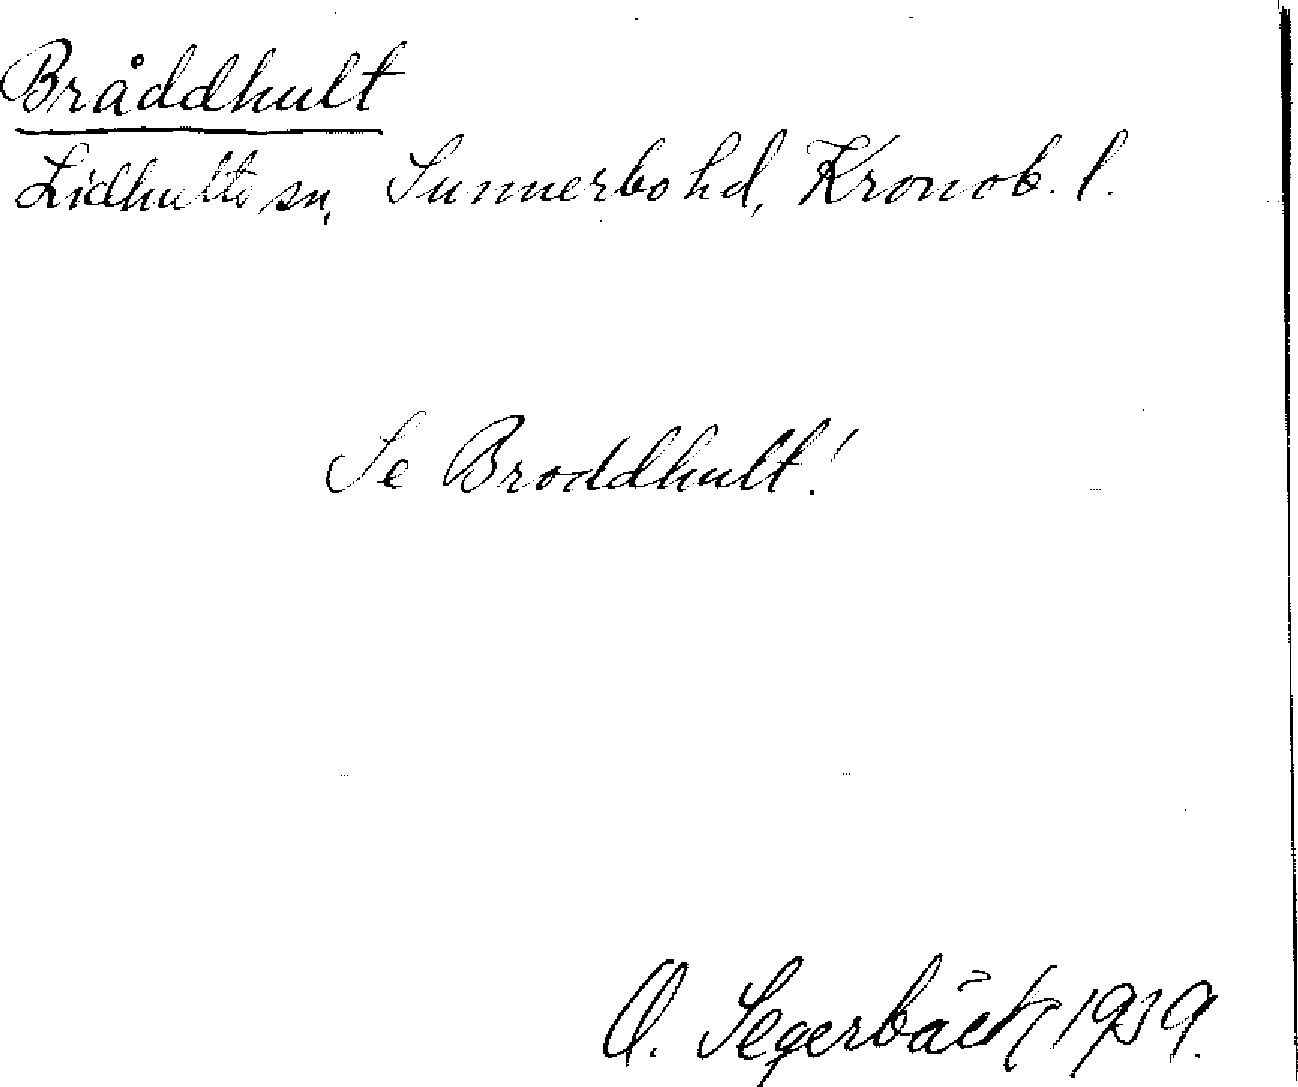 Bråddhult
Lidhults sn, Sunnerbo hd, Kronob. l.
Se Broddhult!
O. Segerbäck 1939.